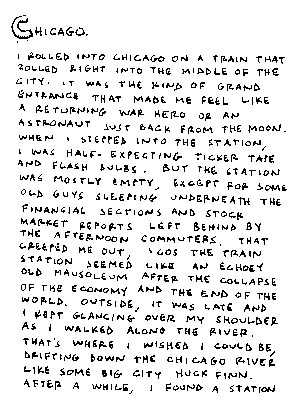 CHICAGO.
I ROLLED INTO CHICAGO ON A TRAIN THAT
ROLLED RIGHT INTO THE MIDDLE OF THE
CITY. IT WAS THE KIND OF GRAND
ENTRANCE THAT MADE ME FEEL LIKE
A RETURNING WAR HERO OR AN
ASTRONAUT JUST BACK FROM THE MOON.
WHEN I STEPPED INTO THE STATION,
I WAS HALF-EXPECTING TICKER TAPE
AND FLASH BULBS. BUT THE STATION
WAS MOSTLY EMPTY, EXCEPT FOR SOME
OLD GUYS SLEEPING UNDERNEATH THE
FINANCIAL SECTIONS AND STOCK
MARKET REPORTS LEFT BEHIND BY
THE AFTERNOON COMMUTERS. THAT
CREEPED ME OUT, COS THE TRAIN
STATION SEEMED LIKE AN ECHOEY
OLD MAUSOLEUM AFTER THE COLLAPSE
OF THE ECONOMY AND THE END OF THE
WORLD. OUTSIDE, IT WAS LATE AND
I KEPT GLANCING OVER MY SHOULDER
AS I WALKED ALONG THE RIVER.
THAT'S WHERE I WISHED I COULD BE,
DRIFTING DOWN THE CHICAGO RIVER
LIKE SOME BIG CITY HUCK FINN.
AFTER A WHILE, I FOUND A STATION